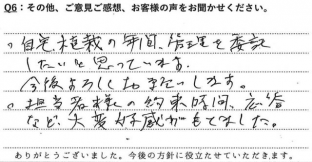 Q6：その他、ご意見ご感想、お客様の声をお聞かせください。
・自宅植栽の年間管理を委託
したいと思っています。
今後よろしくお願いします。
・担当者様の約束時間、応答
など、大変好感がもてました。
ありがとうございました。今後の方針に役立たせていただきます。